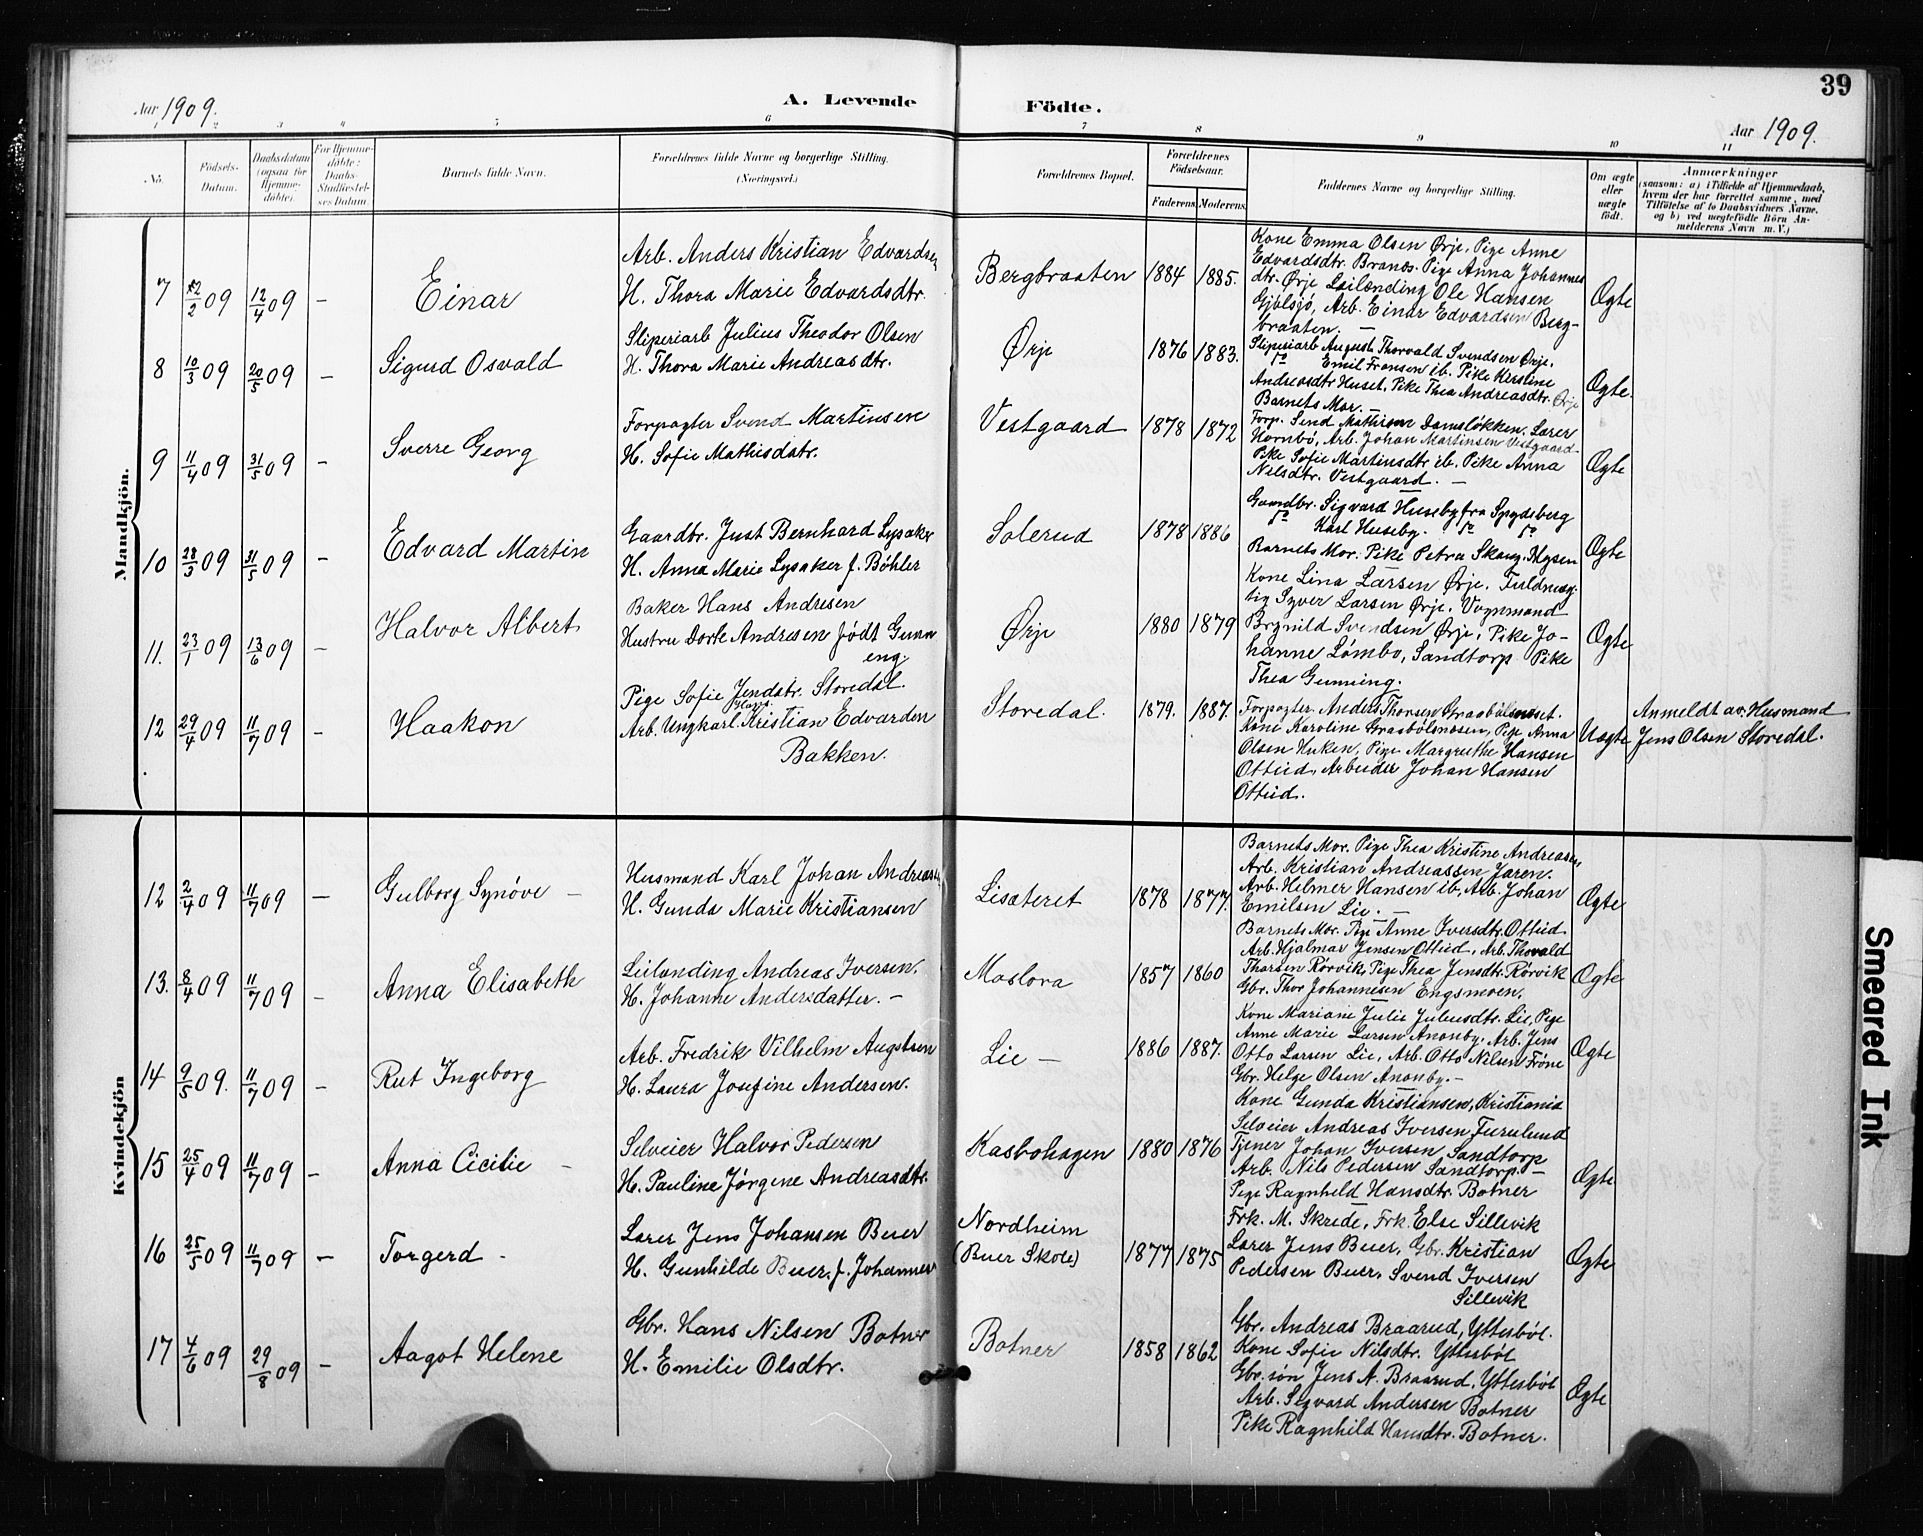 39
Aar 1909.
A. Levende Födte.
Aar 1909.
1 2 3 4 5 6 7 8 9 10 11
No.
Födsels-Datum.
Daabsdatum (ogsaa for Hjemme-döbte).
For Hjemme-döbte: Daabs-Stadfæstel-ses Datum.
Barnets fulde Navn.
Forældrenes fulde Navne og borgerlige Stilling. (Næringsvei.)
Forældrenes Bopæl.
Forældrenes Födselsaar.
Faderens. Moderens.
Faddernes Navne og borgerlige Stilling.
Om ægte eller uægte födt.
Anmærkninger
(saasom: a) i Tilfælde af Hjemmedaab, hvem der har forrettet samme, med Tilföielse af to Daabsvidners Navne, og b) ved uægtefödte Börn An-melderens Navn m. V.)
Mandkjön.
7 2/2 09 12/4 09 – Einar
Arb. Anders Kristian Edvardsen
H. Thora Marie Edvardsdtr.
Bergbraaten 1884 1885.
Kone Emma Olsen Ørje, Pige Anne
Edvardsdtr. Brands. Pige Anna Johannes
dtr. Ørje Leilænding Ole Hansen
Gjølsjø, Arb. Einar Edvardsen Berg-
braaten. –
Ægte
8 10/3 09 20/5 09 – Sigurd Osvald
Sliperiarb Julius Theodor Olsen
H. Thora Marie Andreasdtr.
Ørje 1876 1883.
Sliperiarb August Thorvald Svendsen Ørje.
do Emil Fransen ib. Pike Kirstine
Andreasdtr Huset, Pike Thea Andreasdtr. Ørje
Barnets Mor. –
Ægte.
9 11/4 09 31/5 09 – Sverre Georg
Forpagter Svend Martinsen
H. Sofie Mathisdatr.
Vestgaard 1878 1872
Forp. Damsløkken. Lærer
Hornbø, Arb. Johan Martinsen Vestgaard
Pike Sofie Martinsdtr ib. Pike Anna
Nilsdtr. Vestgaard. –
Ægte
10 28/3 09 31/5 09 – Edvard Martin
Gaardbr. Just Bernhard Lysaker
H. Anna Marie Lysaker f. Böhler
Solerud 1878 1886
Gaardbr. Sigvard Huseby fra Spydeberg
do Karl Huseby. do do
Barnets Mor. Pike Petra Skaug. Mysen
Ægte
11. 23/1 09 13/6 09 – Halvor Albert
Baker Hans Andresen
Hustru Dorte Andresen født Gunn
eng.
Ørje 1880 1879
Kone Lina Larsen Ørje. Fuldmæg.
tig Syver Larsen Ørje. Vognmand
Brynild Svendsen Ørje, Pike Jo-
hanne Lømbo, Sandtorp Pike
Thea Gunning.
Ægte
12 29/4 09 11/7 09 – Haakon
Pige Sofie Jensdtr. Storedal.
Arb. Ungkarl Hans Kristian Edvardsen
Bakken.
Storedal. 1879. 1887.
Forpagter Anders Thorsen
Kone Karoline Grasbølsnæsen, Pige Anna
Olsen Huken, Pige Margrethe Hansen
Otteid, Arbeider Johan Hansen
Otteid.
Uægte
Anmeldt av Husmand
Jens Olsen Storedal.
Kvindekjön
12 2/4 09 11/7 09 – Gulborg Synöve –
Husmand Karl Johan Andreas
H. Gunda Marie Kristiansen
Lisæteret 1878 1877.
Barnets Mor. Pige Thea Kristine Andreasen,
Arb. Kristian Andreassen Jaren.
Arb. Helmer Hansen ib, Arb. Johan
Emilsen Lie. –
Ægte
13. 8/4 09 11/7 09 – Anna Elisabeth
Leilænding Andreas Iversen,
H. Johanne Andersdatter. –
Moslora 1857 1860
Barnets Mor. Pige Anne Iversdtr. Otteid
Arb. Hjalmar Jensen Otteid, Arb. Thorvald
Thorsen Rörvik, Pige Thea Jensdtr. Rörvik
Gbr. Thor Johannesen Engsmoen.
Ægte
14 9/5 09. 11/7 09 – Rut Ingeborg
Arb. Fredrik Vilhelm Augstsen
H. Laura Josefine Andersen.
Lie – 1886 1887.
Kone Mariane Julie Juliusdtr. Lie, Pige
Anne Marie Larsen Anonby. Arb. Jens
Otto Larsen Lie, Arb. Otto Nilsen Fröne
Gbr. Helge Olsen Anonby. –
Ægte
15 25/4 09 11/7 09 – Anna Cicilie –
Selveier Halvor Pedersen
H. Pauline Jørgine Andreasdtr.
Kasbohagen 1880 1876
Kone Gunda Kristiansen, Kristiania
Selveier Andreas Iversen Furulund
Tjener Johan Iversen Sandtorp
Arb. Nils Pedersen Sandtorp. –
Pige Ragnhild Hansdtr. Botner
Ægte
16 25/5 09 11/7 09 – Torgerd –
Lærer Jens Johansen Buer
H. Gunhilde Buer, f. Johannes
Nordheim
(Buer Skole) 1877 1875
Frk. M. Skrede, Frk. Else Sillevik
Lærer Jens Buer, Gbr. Kristian
Pedersen Buer, Svend Iversen
Sillevik
Ægte
17 4/6 09 29/8 09 – Aagot Helene
Gbr. Hans Nilsen Botner
H. Emilie Olsdtr.
Botner 1858 1862
Gbr. Andreas Braarud, Ytterböl.
Kone Sofie Nilsdtr. Ytterböl
Gbr. søn Jens A. Braarud, Ytterböl
Arb. Sigvard Andersen Botner
Pike Ragnhild Hansdtr. Botner.
Ægte
Smeared Ink